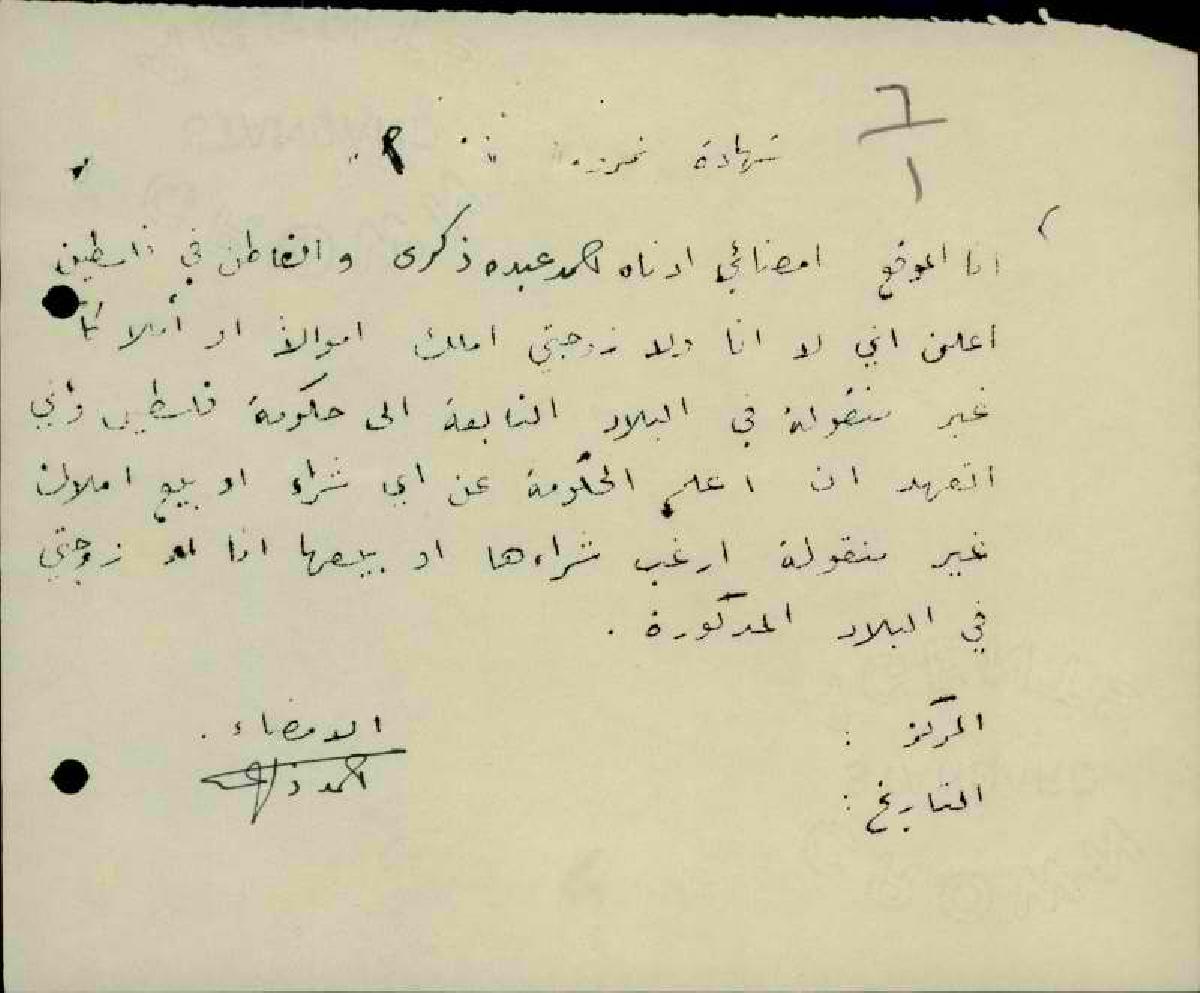 ٦
١
شهادة نمرة " ٢ "
انا الموقع امضائي ادناه احمد عبده ذكرى و القاطن في فلسطين
أعلن اني لا انا ولا زوجتي املك اموالاً او أملاكاً
غير منقولة في البلاد التابعة الى حكومة فلسطين وأني
اتعهد ان اعلم الحكومة عن اي شراء او بيع املاك
غير منقولة ارغب شراءها او بيعها انا او زوجتي
في البلاد المذكورة .
المركز :
الامضاء .
التاريخ :